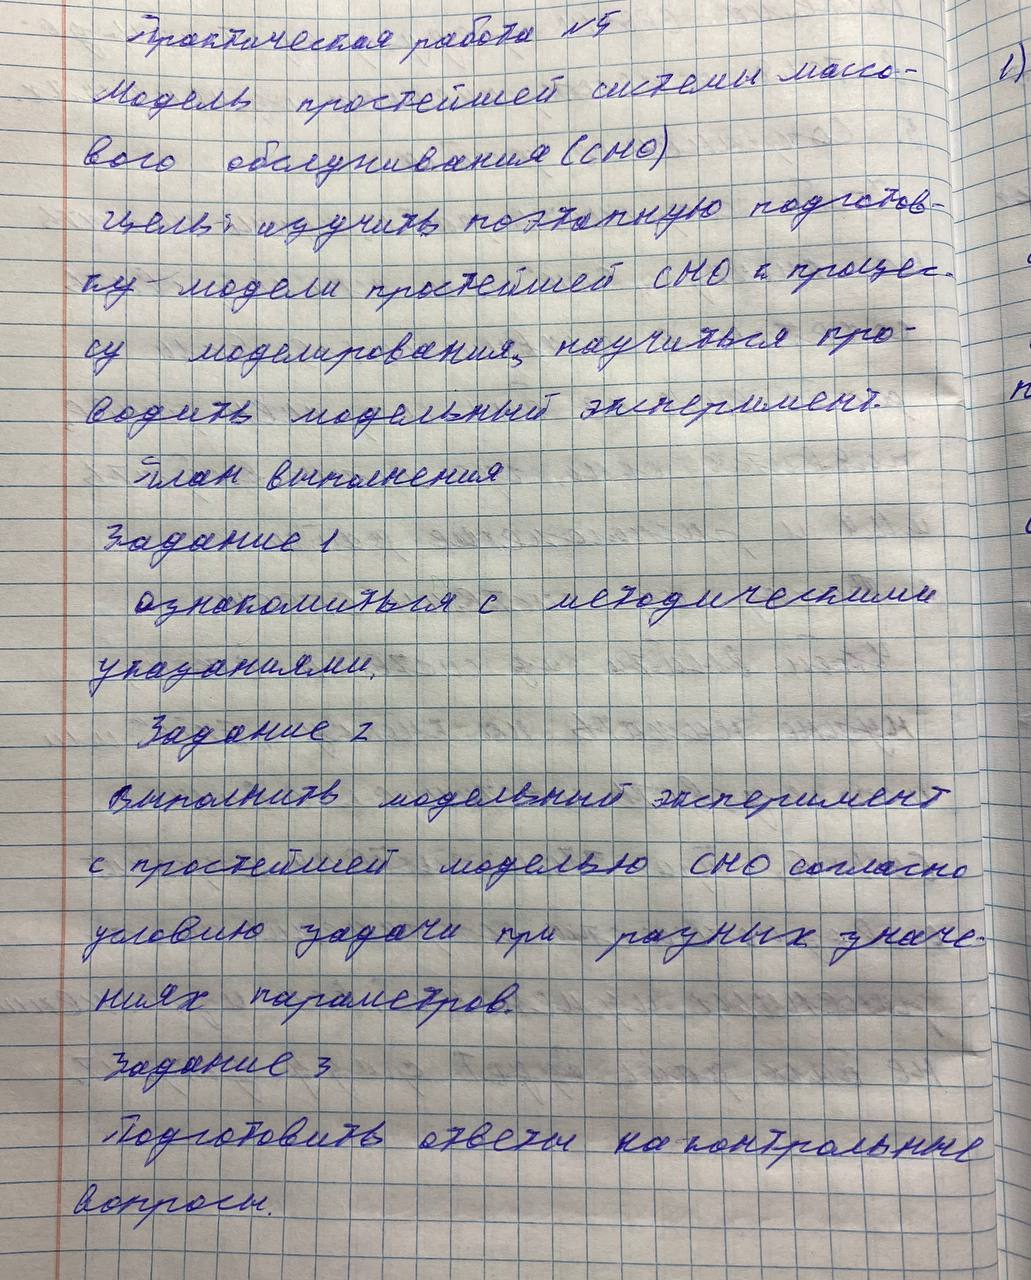 Практическая работа №5
Модель простейшей системы массо-
вого обслуживания (СМО)
Цель: изучить поэтапную подготов-
ку модели простейшей СМО к процес-
су моделирования, научиться про-
водить модельный эксперимент.
План выполнения
Задание 1
ознакомиться с методическими
указаниями.
Задание 2
Выполнить модельный эксперимент
с простейшей моделью СМО согласно
условию задачи при разных значе-
ниях параметров.
Задание 3
Подготовить ответы на контрольные
вопросы.
1)